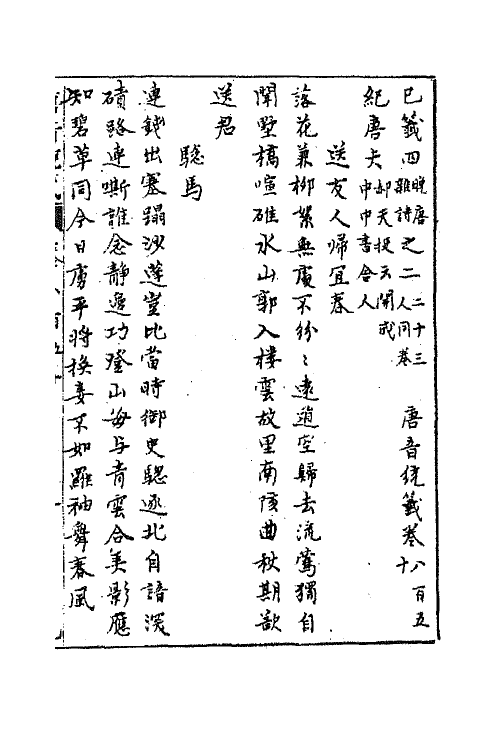 已籤四晚唐雜詩之二二十三人同卷 唐音統籤卷八百五十
紀唐夫邺天授云開成中中書舍人
送友人歸宜春
落花兼柳絮無處不紛〻遠道空歸去流鶯獨自
聞墅橋喧碓水山郭入樓雲故里南陔曲秋期欲
送君
驄馬
連錢出塞蹋沙蓬豈比當時御史驄逐北自諳深
磧路連嘶誰念靜邊功登山每与青雲合弄影應
知碧草同今日虜平將換妾不如羅袖舞春風